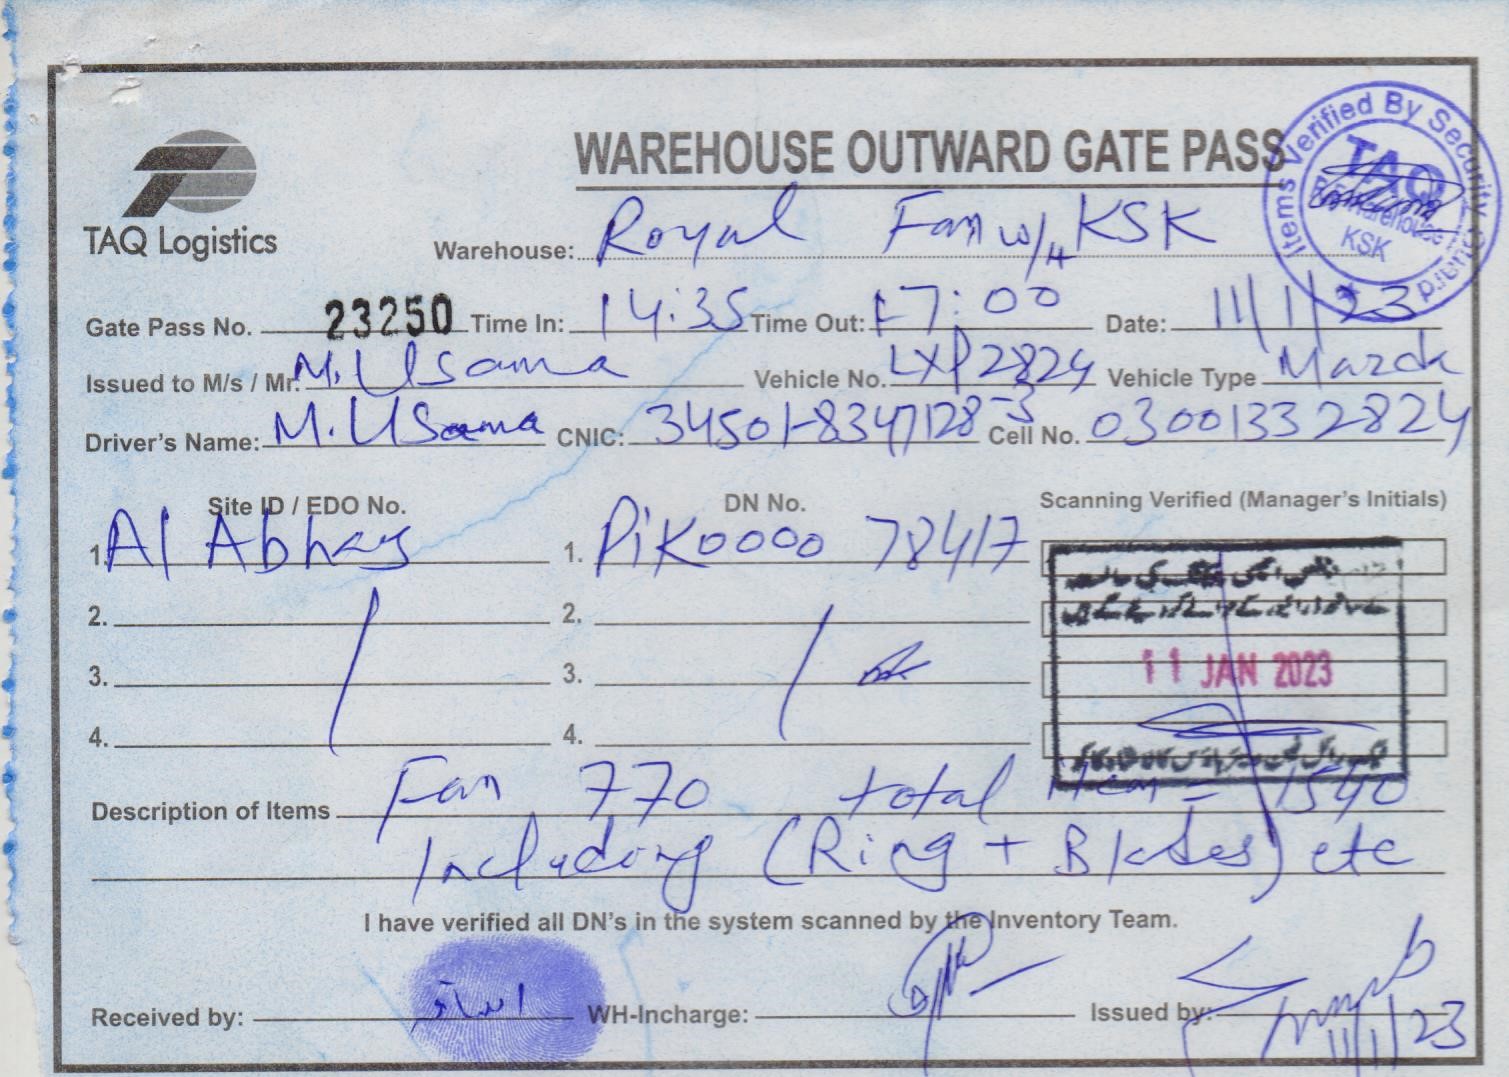 WAREHOUSE OUTWARD GATE PASS
TAQ Logistics
Warehouse: Royal Fan w/H KSK
Items Verified By Security Guard
TAQ
Warehouse
KSK
Gate Pass No. 23250 Time In: 14:35 Time Out: 17:00 Date: 11/1/23
Issued to M/s / Mr. M. Usama Vehicle No. LXP2824 Vehicle Type Mazda
Driver's Name: M. Usama CNIC: 34501-8347128-3 Cell No. 03001332824
Site ID / EDO No. DN No. Scanning Verified (Manager's Initials)
1. Al Abhas 1. PiK0000 78417
2. 2.
3. 3.
11 JAN 2023
4. 4.
Description of Items Fan 770 total item = 1540
Including (Ring + Blades) etc
I have verified all DN's in the system scanned by the Inventory Team.
Received by: WH-Incharge: Issued by:
11/1/23